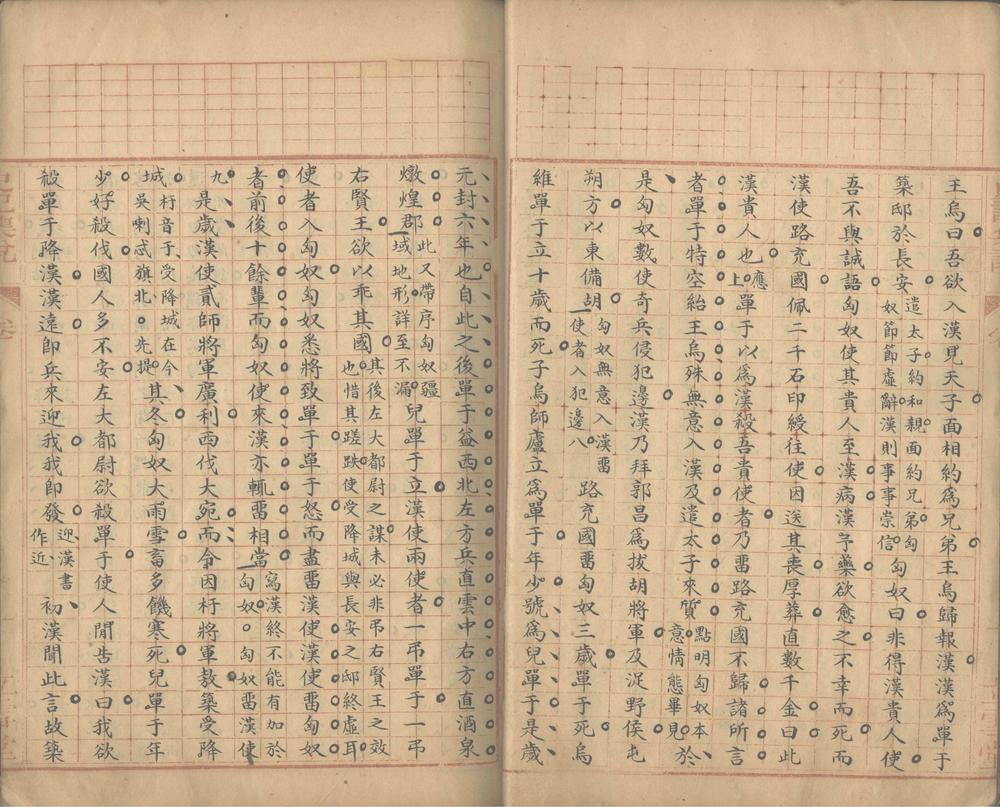 王烏曰吾欲入漢見天子面相約爲兄弟王烏歸報漢漢爲單于
築邸於長安遣太子約和親面約兄弟匈奴節節虛辭漢則事事崇信匈奴曰非得漢貴人使
吾不與誠語匈奴使其貴人至漢病漢予藥欲愈之不幸而死而
漢使路充國佩二千石印綬往使因送其喪厚葬直數千金曰此
漢貴人也應上單于以爲漢殺吾貴使者乃畱路充國不歸諸所言
者單于特空紿王烏殊無意入漢及遣太子來質點明匈奴本意情態畢見於
是匈奴數使奇兵侵犯邊漢乃拜郭昌爲拔胡將軍及浞野侯屯
朔方以東備胡匈奴無意入漢畱使者入犯邊八路充國畱匈奴三歲單于死烏
維單于立十歲而死子烏師廬立爲單于年少號爲兒單于是歲
元封六年也自此之後單于益西北左方兵直雲中右方直酒泉
燉煌郡此又帶序匈奴疆域地形詳至不漏兒單于立漢使兩使者一弔單于一弔
右賢王欲以乖其國其後左大都尉之謀未必非弔右賢王之效也惜其蹉跌使受降城與長安之邸終虛耳
使者入匈奴匈奴悉將致單于單于怒而盡畱漢使漢使畱匈奴
者前後十餘輩而匈奴使來漢亦輒畱相當寫漢終不能有加於匈奴。匈奴畱漢使
九是歲漢使貳師將軍廣利西伐大宛而令因杅將軍敖築受降
城杅音于受降城在今吳喇忒旗北。先提其冬匈奴大雨雪畜多饑寒死兒單于年
少好殺伐國人多不安左大都尉欲殺單于使人閒告漢曰我欲
殺單于降漢漢遠卽兵來迎我我卽發迎漢書作近初漢聞此言故築